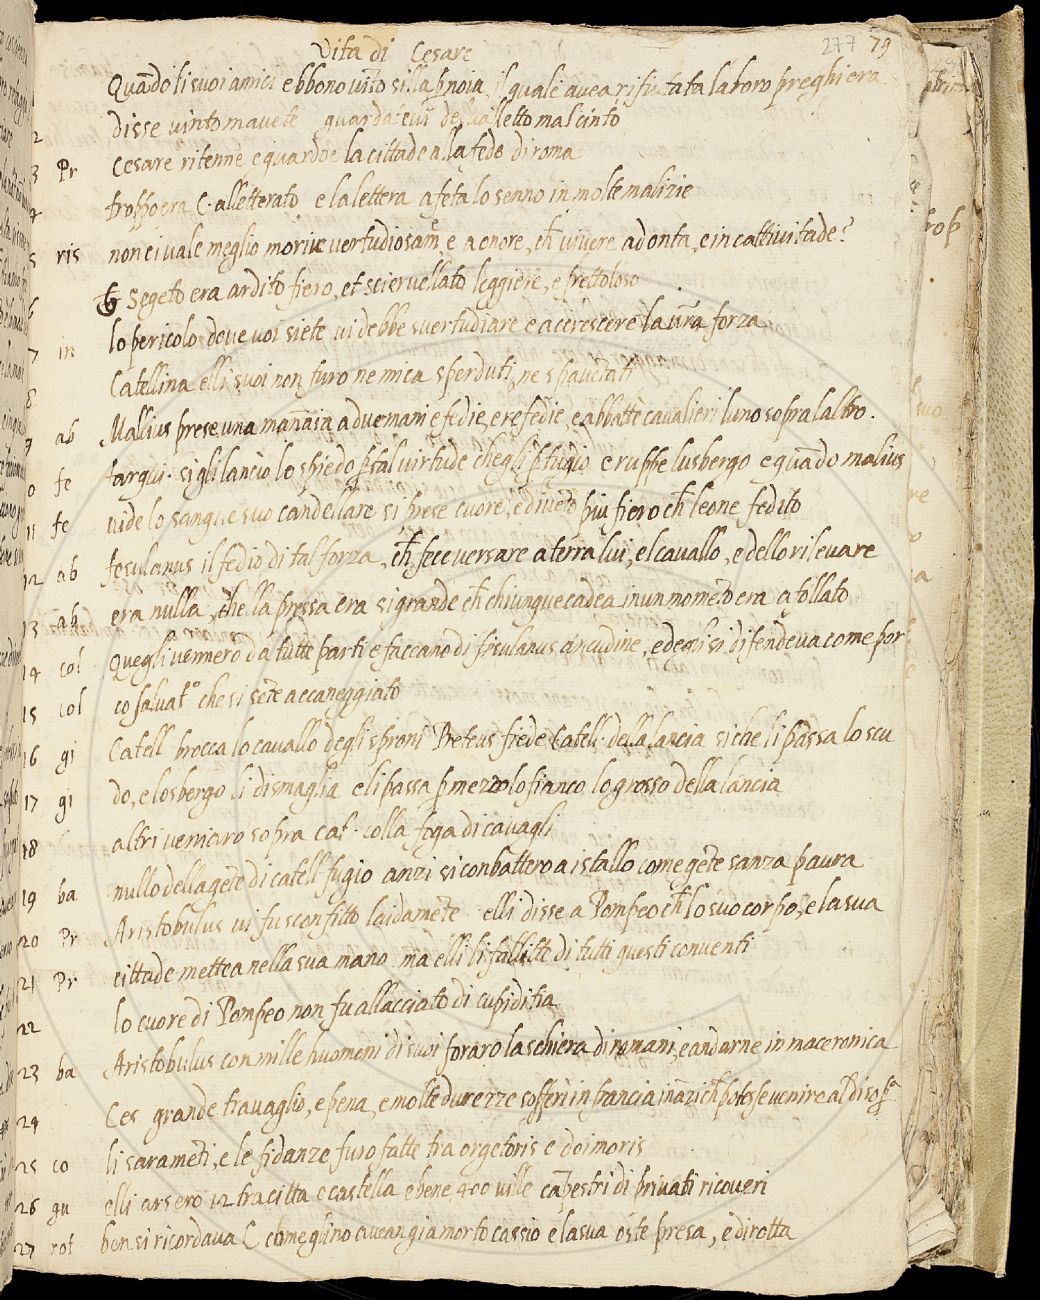 Vita di Cesare
277 79
Quãdo li suoi amici ebbono uĩto silla p̱ noia il quale avea rifiutata la loro preghiera
2 disse vinto mavete guardatevi del valletto mal cinto
3 Pr Cesare ritenne e guardoe la cittade alla fede di roma
4 troppo era C. alletterato e la lettera afeta lo senno in molte malizie
5 ris non ci vale meglio morire vertudiosamẽ, e a onore, cħ vivere ad onta, e in cattivitade?
6 Segeto era ardito fiero, et sciervellato leggiere, e frettoloso
7 in lo pericolo dove voi siete vi debbe svertudiare e accrescere la vr̃a forza
8 Catellina elli suoi non furo ne mica sperduti, ne spauẽtati
9 ab Mallius prese una mañaia a due mani e fedie, e refedie, e abbatte cavalieri luno sopra laltro.
0 fe tarqui. si gli lancio lo spiedo p̱ tal virtude che gli p̱tugio e ruppe lusbergo e quãdo malius
11 fe vide lo sangue suo candellare si prese cuore, e diveto piu fiero cħ leone fedito
12 ab fesulanus il fedio di tal forza, cħ fece versare a terra lui, el cavallo, e dello rilevare
13 ab era nulla, che la pressa era si grande cħ chiunque cadea in un momẽto era afollato
14 col Quegli vennero da tutte parti e faccano di fisulanus ancudine, ed egli si difendeva come por
15 col co salvat.o che si sẽte accaneggiato
16 gi Catell brocca lo cavallo degli sproni Preteus fiede Catell. della lancia si che li passa lo scu
17 gi do, e losbergo li dismaglia e li passa p̱ mezzo lo fianco lo grosso della lancia
18 altri vennaro sopra cat. colla foga di cavagli
19 ba nullo della gẽte di catell. fugio anzi si conbattero a istallo come gẽte sanza paura
20 Pr Aristobulus vi fu sconfitto laidamẽte elli disse a Pompeo cħ lo suo corpo, e la sua
21 Pr cittade mettea nella sua mano ma elli li fallitte di tutti questi conventi
22 lo cuore di Pompeo non fu allacciato di cupiditia
23 ba Aristobulus con mille huomeni di suoi foraro la schiera di romani, e andarne in maceronica
24 Ces grande travaglio, e pena, e molte durezze sofferi in francia inãzi cħ potesse venire al di sop̱a
25 co li saramẽti, e le fidanze furo fatte tra orgetoris e doimoris
26 gu elli arsero 12 tra citta e castella e bene 400 ville cãpestri di privati ricoveri
27 rot ben si ricordava C come glino avean gia morto cassio e la sua oste presa, e dirotta